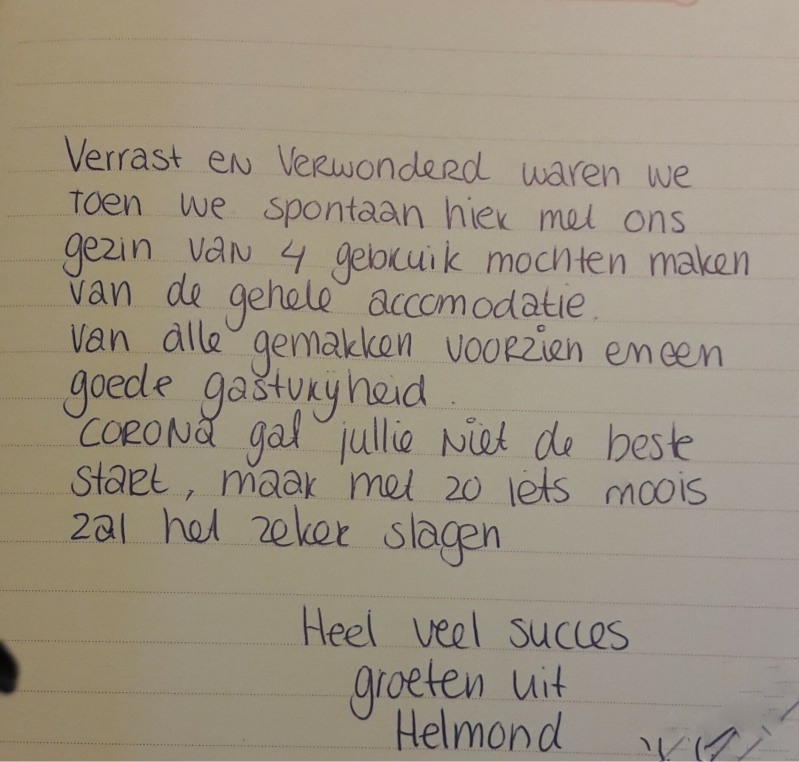 Verrast en verwonderd waren we
toen we spontaan hier met ons
gezin van 4 gebruik mochten maken
van de gehele accomodatie.
van alle gemakken voorzien en een
goede gastvrijheid.
CORONA gaf jullie niet de beste
start, maar met zo iets moois
zal het zeker slagen
Heel veel succes
groeten uit
Helmond